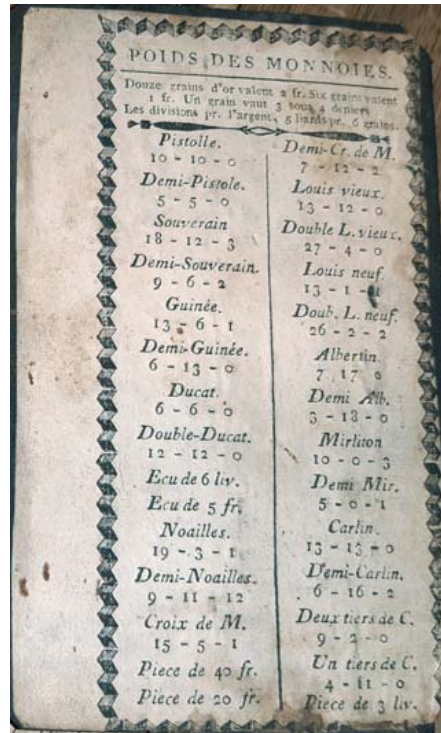 POIDS DES MONNOIES.
Douze grains d'or valent 2 fr. Six grains valent
1 fr. Un grain vaut 3 sous 4 deniers
Les divisions pr. l'argent, 5 liards pr. 6 grains.
Pistolle.
10 - 10 - 0
Demi-Pistole.
5 - 5 - 0
Souverain
18 - 12 - 3
Demi-Souverain.
9 - 6 - 2
Guinée.
13 - 6 - 1
Demi-Guinée.
6 - 13 - 0
Ducat.
6 - 6 - 0
Double-Ducat.
12 - 12 - 0
Ecu de 6 liv.
Ecu de 5 fr.
Noailles.
19 - 3 - 1
Demi-Noailles.
9 - 11 - 12
Croix de M.
15 - 5 - 1
Piece de 40 fr.
Piece de 20 fr.
Demi-Cr. de M.
7 - 12 - 2
Louis vieux.
13 - 12 - 0
Double L. vieux.
27 - 4 - 0
Louis neuf.
13 - 1 -
Doub. L. neuf.
26 - 2 - 2
Albertin.
7 17 0
Demi Alb.
3 - 18 - 0
Mirliton
10 - 0 - 3
Demi Mir.
5 - 0 - 1
Carlin.
13 - 13 - 0
Demi-Carlin.
6 - 16 - 2
Deux tiers de C.
9 - 2 - 0
Un tiers de C.
4 - 11 - 0
Piece de 3 liv.